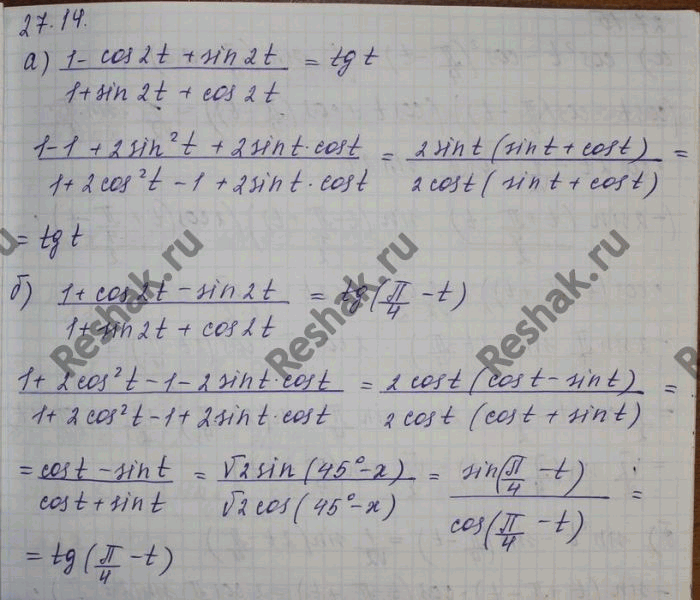 27.14.
а) (1 - cos2t + sin2t)/(1 + sin2t + cos2t) = tg t
(1 - 1 + 2sin²t + 2sint·cost)/(1 + 2cos²t - 1 + 2sint·cost) = (2sint(sint + cost))/(2cost(sint + cost)) =
= tg t
б) (1 + cos2t - sin2t)/(1 + sin2t + cos2t) = tg(π/4 - t)
(1 + 2cos²t - 1 - 2sint·cost)/(1 + 2cos²t - 1 + 2sint·cost) = (2cost(cost - sint))/(2cost(cost + sint)) =
= (cost - sint)/(cost + sint) = (√2sin(45° - x))/(√2cos(45° - x)) = (sin(π/4 - t))/(cos(π/4 - t)) =
= tg(π/4 - t)
Reshak.ru
Reshak.ru
Reshak.ru